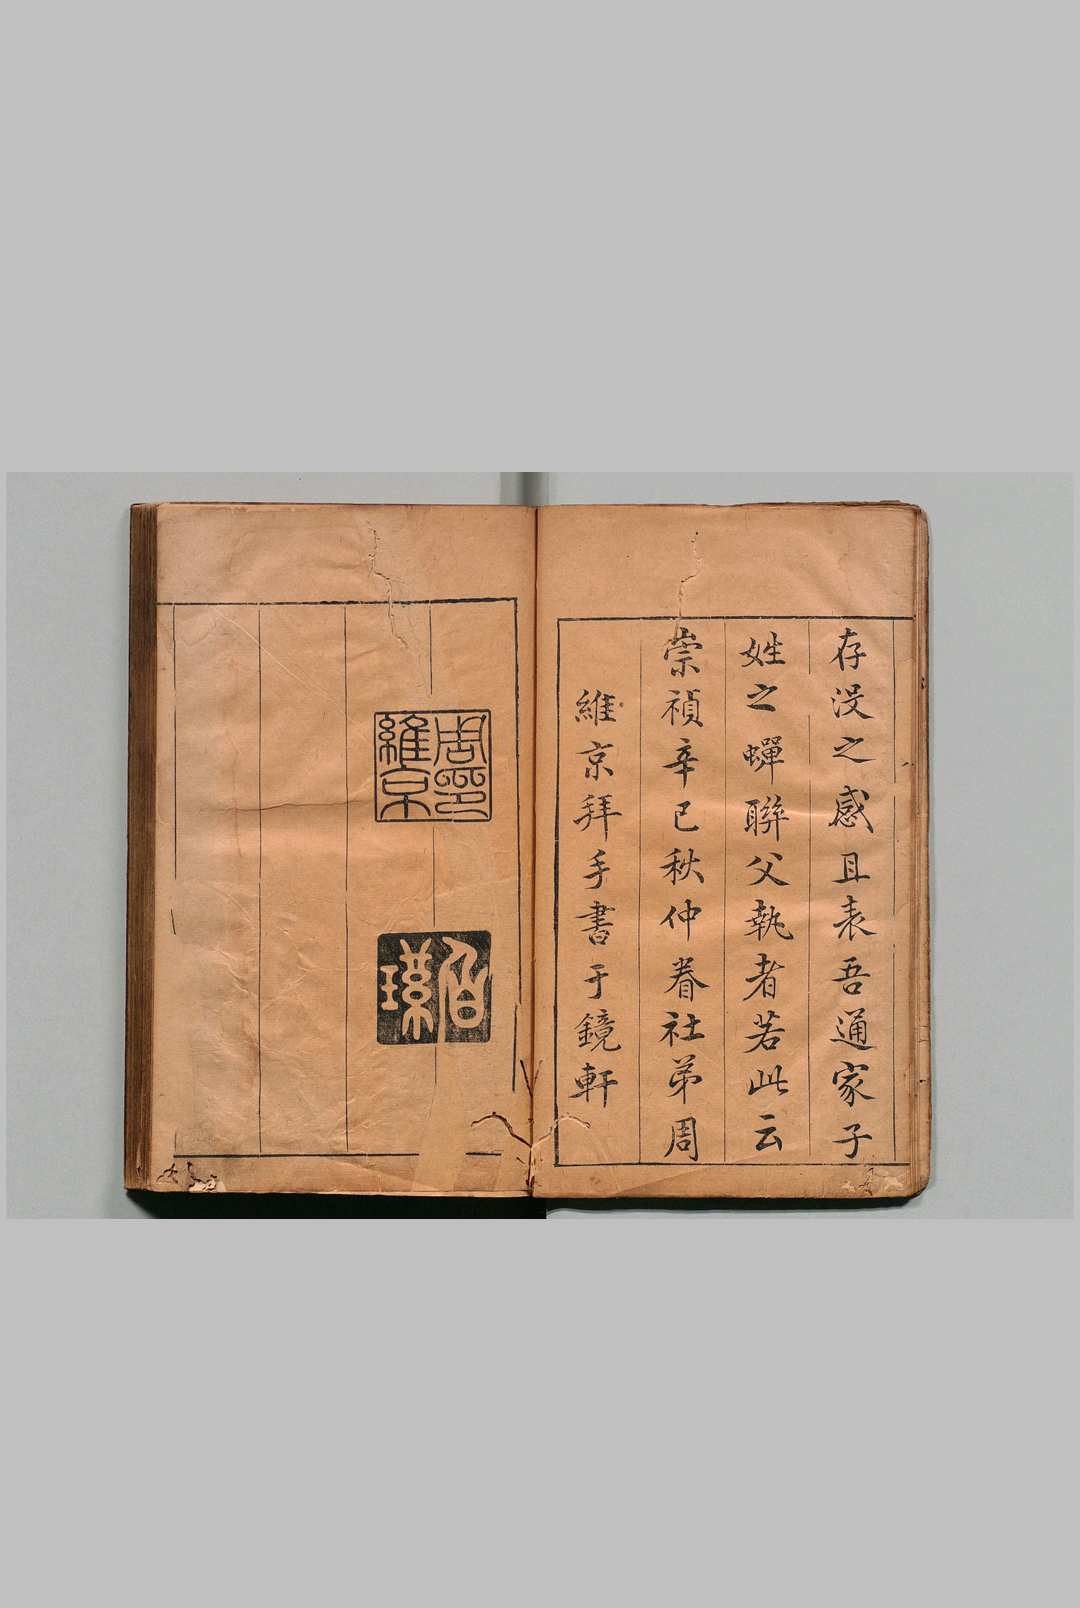 存没之感且表吾通家子
姓之蟬聯父執者若此云
崇禎辛巳秋仲眷社弟周
維京拜手書于鏡軒
周印
維京